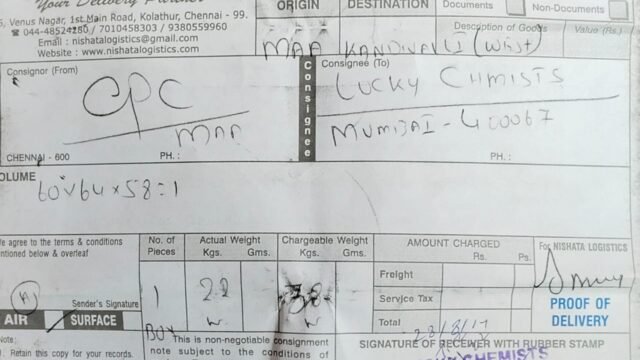 Your Delivery Partner
5, Venus Nagar, 1st Main Road, Kolathur, Chennai - 99.
☎ 044-48524280 / 7010458303 / 9380559960
Email : nishatalogistics@gmail.com
Website : www.nishatalogistics.com
ORIGIN DESTINATION Documents Non-Documents
Description of Goods Value (Rs.)
MAA KANDIVALI (West)
Consignor (From)
CPC
MAA
CHENNAI - 600 PH. :
Consignee
Consignee (To)
LUCKY CHMISTS
MUMBAI - 400067
PH. :
OLUME
60 x 64 x 58 = 1
We agree to the terms & conditions
ntioned below & overleaf
Sender's Signature
AIR SURFACE
No. of Pieces
1
BOX
Actual Weight
Kgs. Gms.
22
Chargeable Weight
Kgs. Gms.
38
AMOUNT CHARGED
Rs. Ps.
Freight
Service Tax
Total
For NISHATA LOGISTICS
PROOF OF
DELIVERY
Note:
. Retain this copy for your records.
This is non-negotiable consignment
note subject to the conditions of
SIGNATURE OF RECEIVER WITH RUBBER STAMP
CHEMISTS